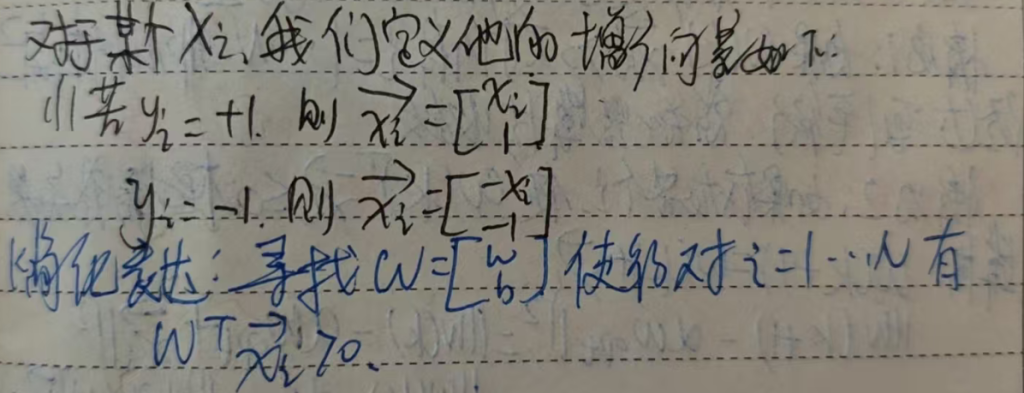 对于某个 Xi, 我们定义他的增广向量如下:
(1) 若 yi = +1. 则 →xi = [xi 1]
yi = -1. 则 →xi = [-xi -1]
简化表达: 寻找 W = [w b] 使得对 i = 1 … N 有
W^T →xi > 0.